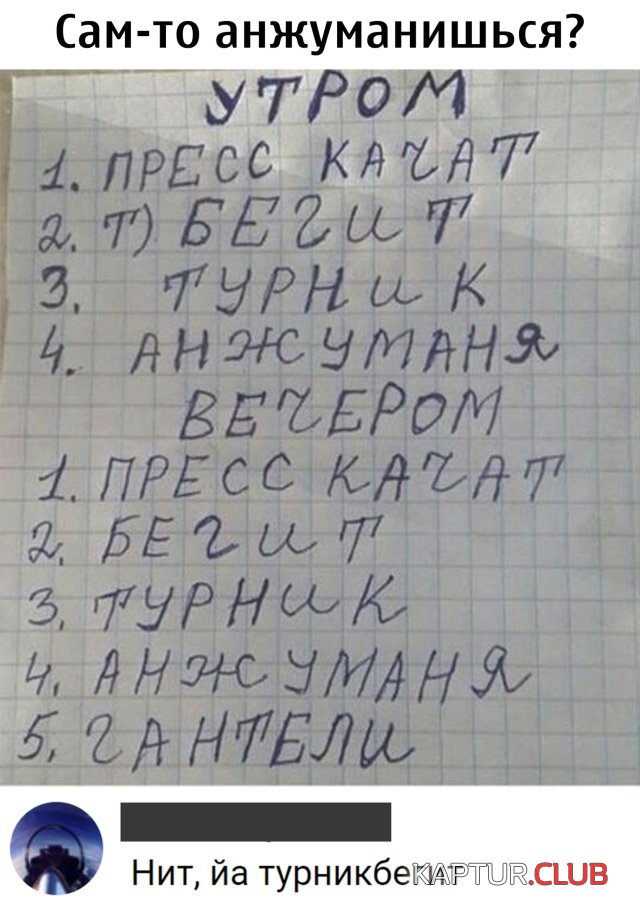 Сам-то анжуманишься?
УТРОМ
1. ПРЕСС КАЧАТ
2. Т) БЕГИТ
3. ТУРНИК
4. АНЖУМАНЯ
ВЕЧЕРОМ
1. ПРЕСС КАЧАТ
2. БЕГИТ
3. ТУРНИК
4. АНЖУМАНЯ
5. ГАНТЕЛИ
Нит, йа турникбегит
KAPTUR.CLUB